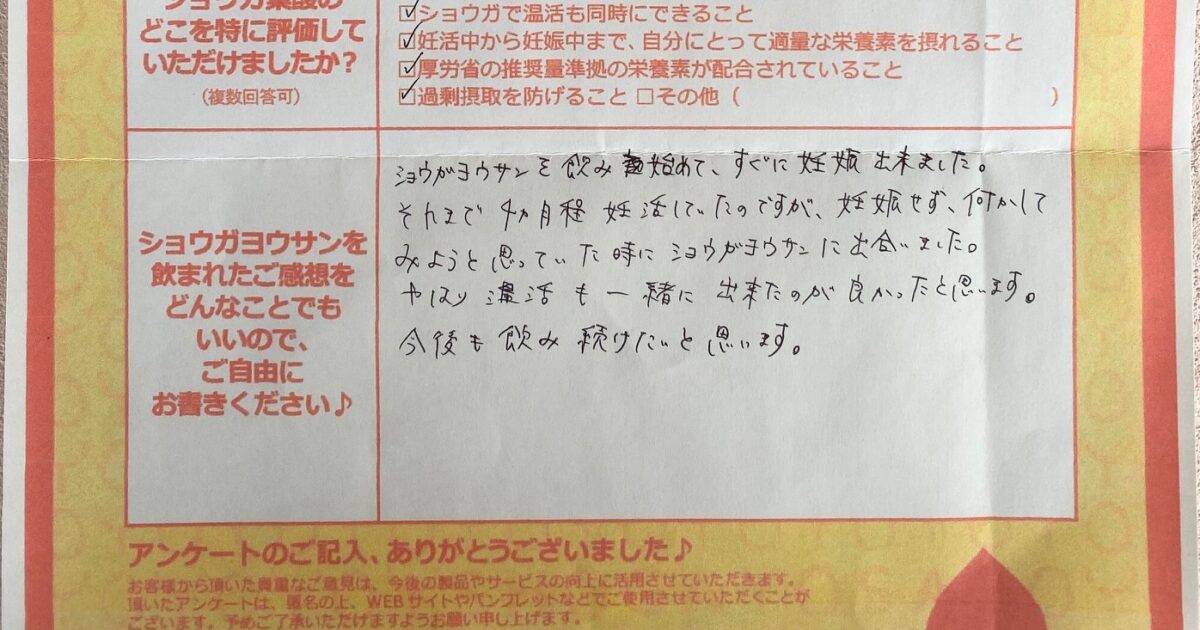 ショウガ葉酸の
どこを特に評価して
いただけましたか？
（複数回答可）
☑ショウガで温活も同時にできること
☑妊活中から妊娠中まで、自分にとって適量な栄養素を摂れること
☑厚労省の推奨量準拠の栄養素が配合されていること
☑過剰摂取を防げること □その他（ ）
ショウガヨウサンを
飲まれたご感想を
どんなことでも
いいので、
ご自由に
お書きください♪
ショウガヨウサンを飲み始めて、すぐに妊娠出来ました。
それまで4カ月程妊活していたのですが、妊娠せず、何かして
みようと思っていた時にショウガヨウサンに出合いました。
やはり温活も一緒に出来たのが良かったと思います。
今後も飲み続けたいと思います。
アンケートのご記入、ありがとうございました♪
お客様から頂いた貴重なご意見は、今後の製品やサービスの向上に活用させていただきます。
頂いたアンケートは、匿名の上、WEBサイトやパンフレットなどでご使用させていただくことが
ございます。予めご了承いただけますようお願い申し上げます。